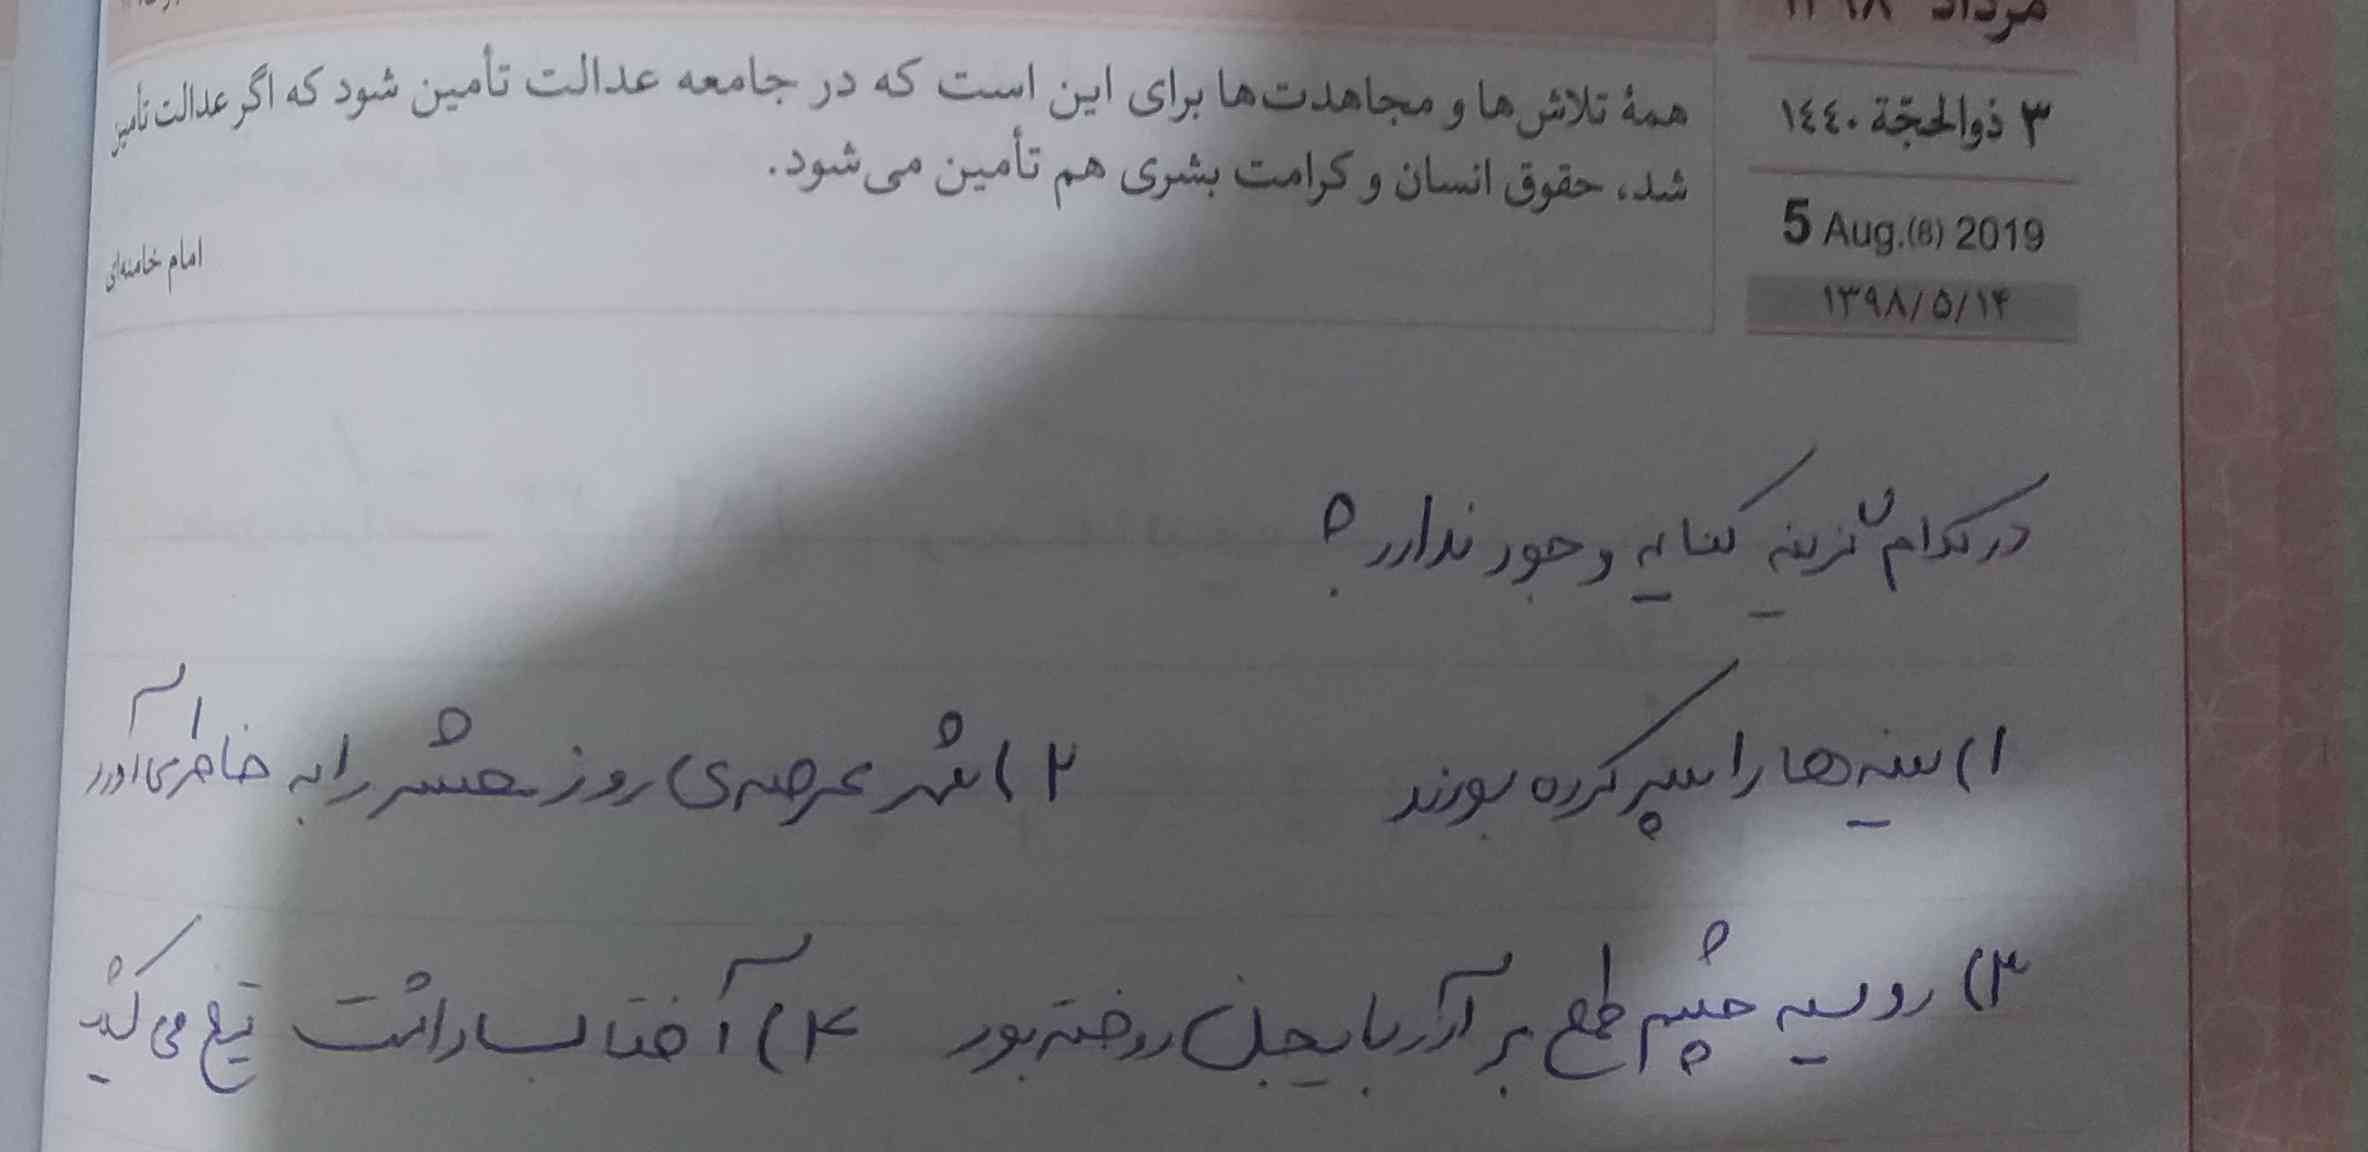 مرداد ۱۳۹۸
۳ ذوالحجّة ۱٤٤۰
5 Aug.(8) 2019
۱۳۹۸/۵/۱۴
همهٔ تلاش‌ها و مجاهدت‌ها برای این است که در جامعه عدالت تأمین شود که اگر عدالت تأمین
شد، حقوق انسان و کرامت بشری هم تأمین می‌شود.
امام خامنه‌ای
در کدام گزینه کنایه وجود ندارد؟
۱) سینه‌ها را سپر کرده بودند ۲) شهر عرصه‌ی روز محشر را به خاطر می‌آورد
۳) روسیه چشم طمع بر آذربایجان دوخته بود ۴) آفتاب داشت تیغ می‌کشید